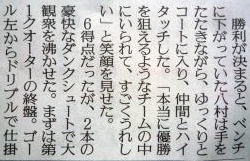 勝利が決まると、ベンチ
に下がっていた八村は手を
たたきながら、ゆっくりと
コートに入り、仲間とハイ
タッチした。「本当に優勝
を狙えるようなチームの中
にいられて、すごくうれし
い」と笑顔を見せた。
6得点だったが、2本の
豪快なダンクシュートで大
観衆を沸かせた。まずは第
1クオーターの終盤。ゴー
ル左からドリブルで仕掛